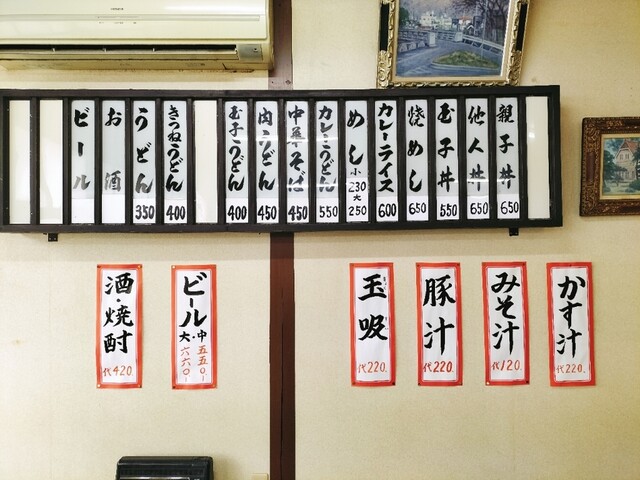 親子丼 650
他人丼 650
玉子丼 550
焼めし 650
カレーライス 600
めし 小 230 大 250
カレーうどん 550
中華そば 450
肉うどん 450
玉子うどん 400
きつねうどん 400
うどん 350
お酒
ビール
かす汁 代220.
みそ汁 代120.
豚汁 代220.
玉吸 代220.
ビール 大・中 五五〇- 六六〇-
酒・焼酎 代420.